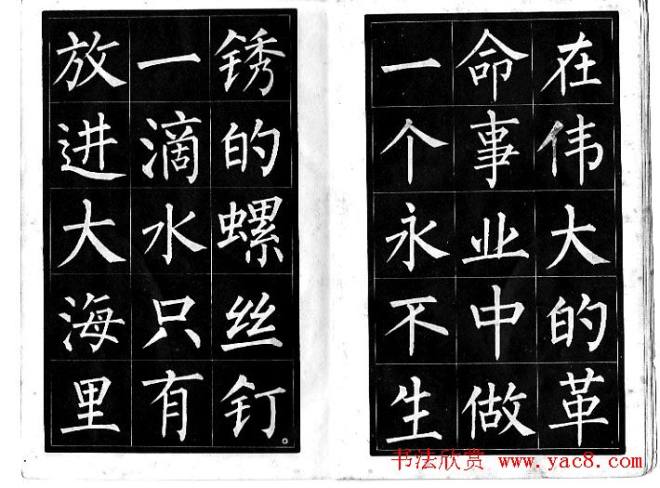 在伟大的革
命事业中做
一个永不生
锈的螺丝钉。
一滴水只有
放进大海里
书法欣赏 www.yac8.com